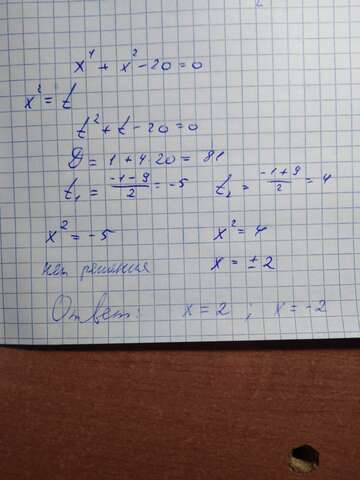 x⁴ + x² - 20 = 0
x² = t
t² + t - 20 = 0
D = 1 + 4·20 = 81
t₁ = (-1-9)/2 = -5 t₂ = (-1+9)/2 = 4
x² = -5 x² = 4
нет решения x = ±2
Ответ: x = 2 ; x = -2